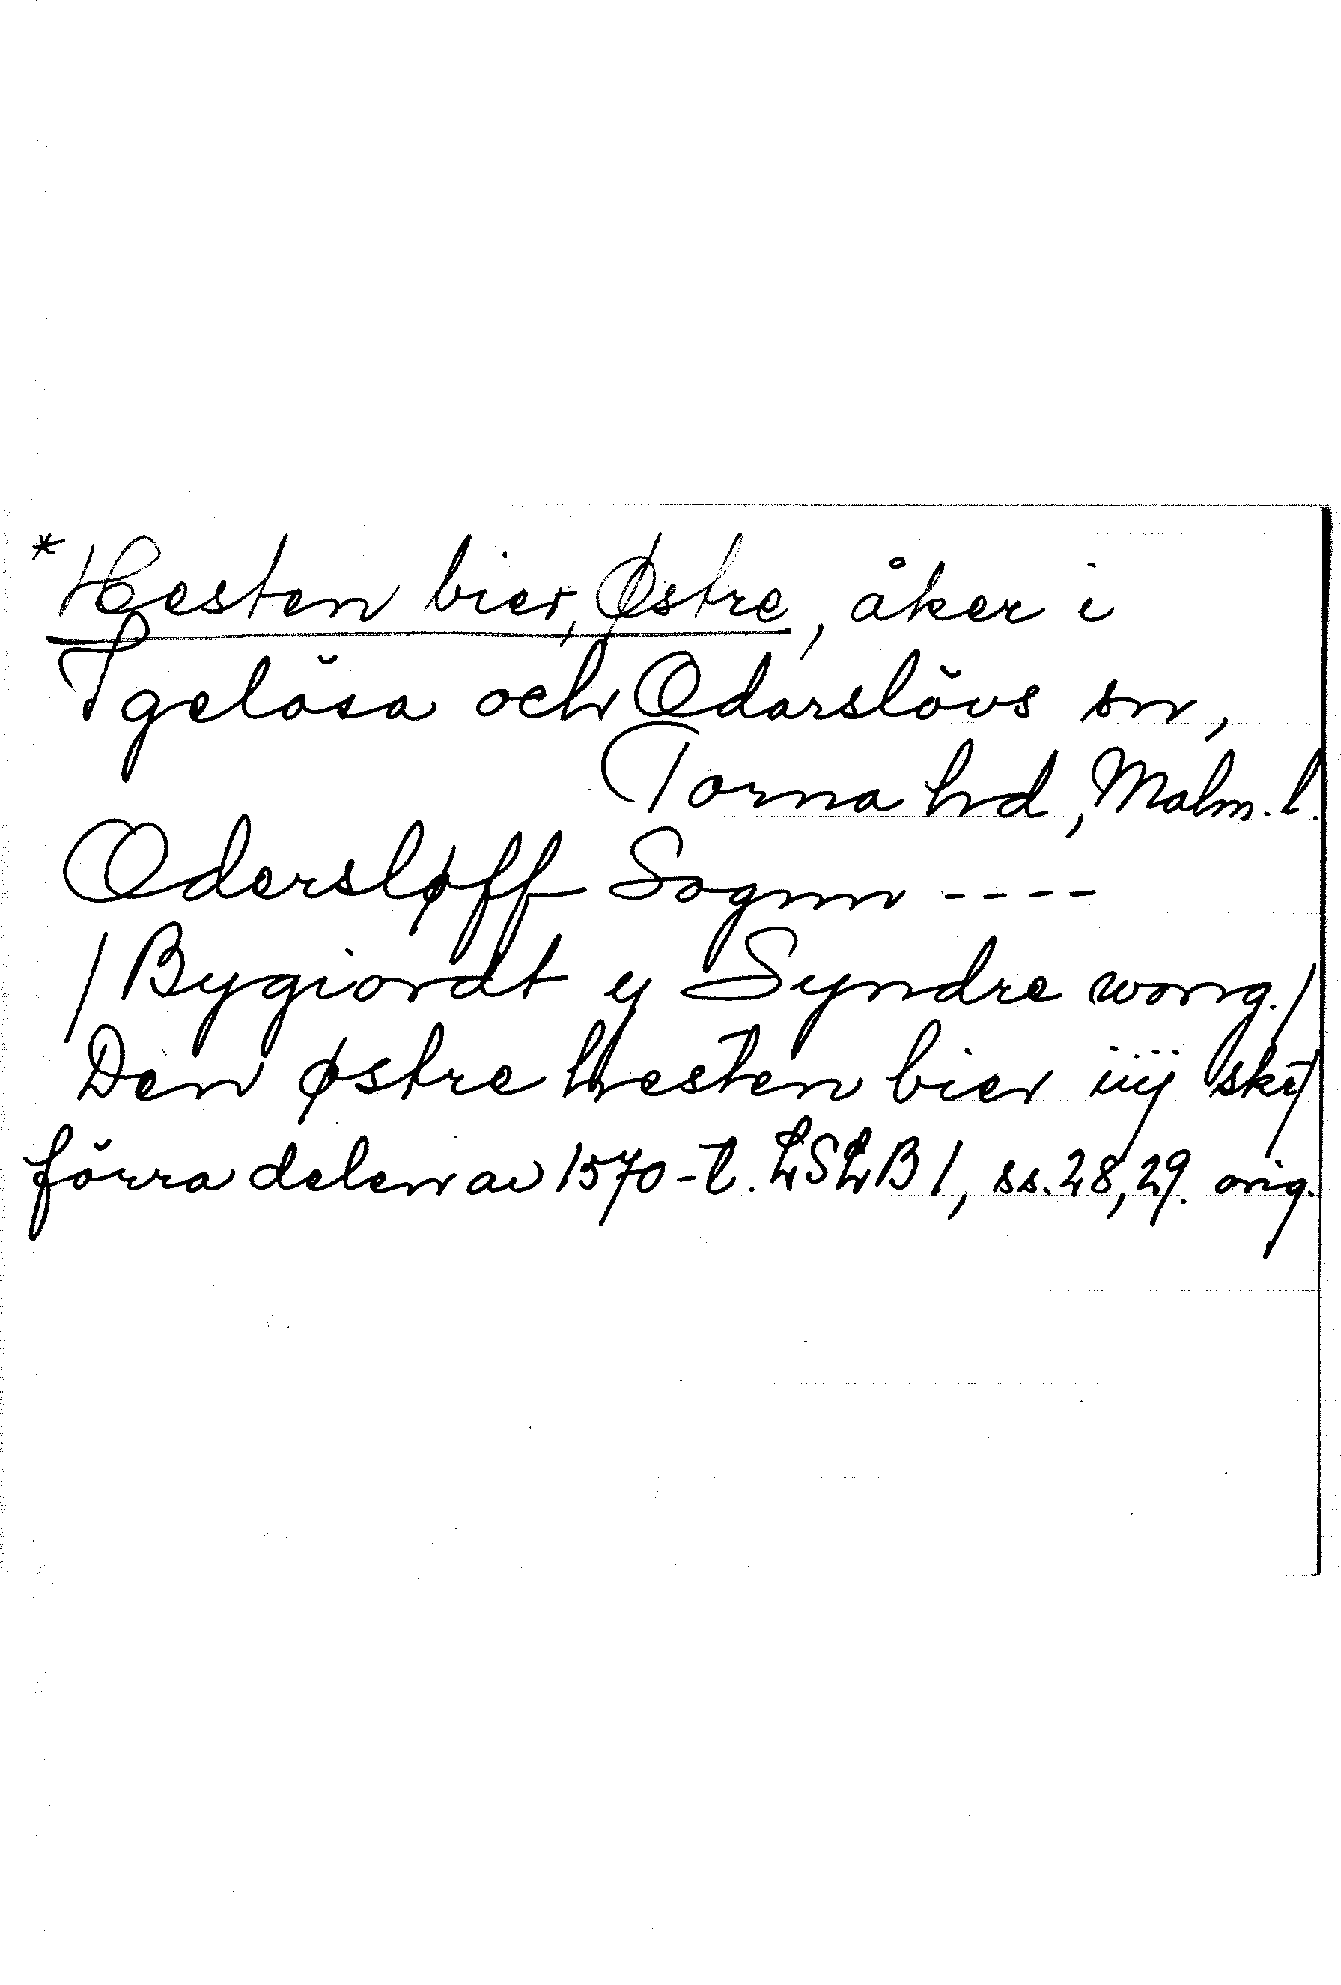 *Hesten bier, Østre, åker i
Igelösa och Odarslövs sn,
Torna hd, Malm. l.
Odersløff Sognn ----
/Bygiordt y Syndre wong./
Den østre hesten bier iiij
förra delen av 1570-t. LSLB 1, ss. 28, 29. orig.